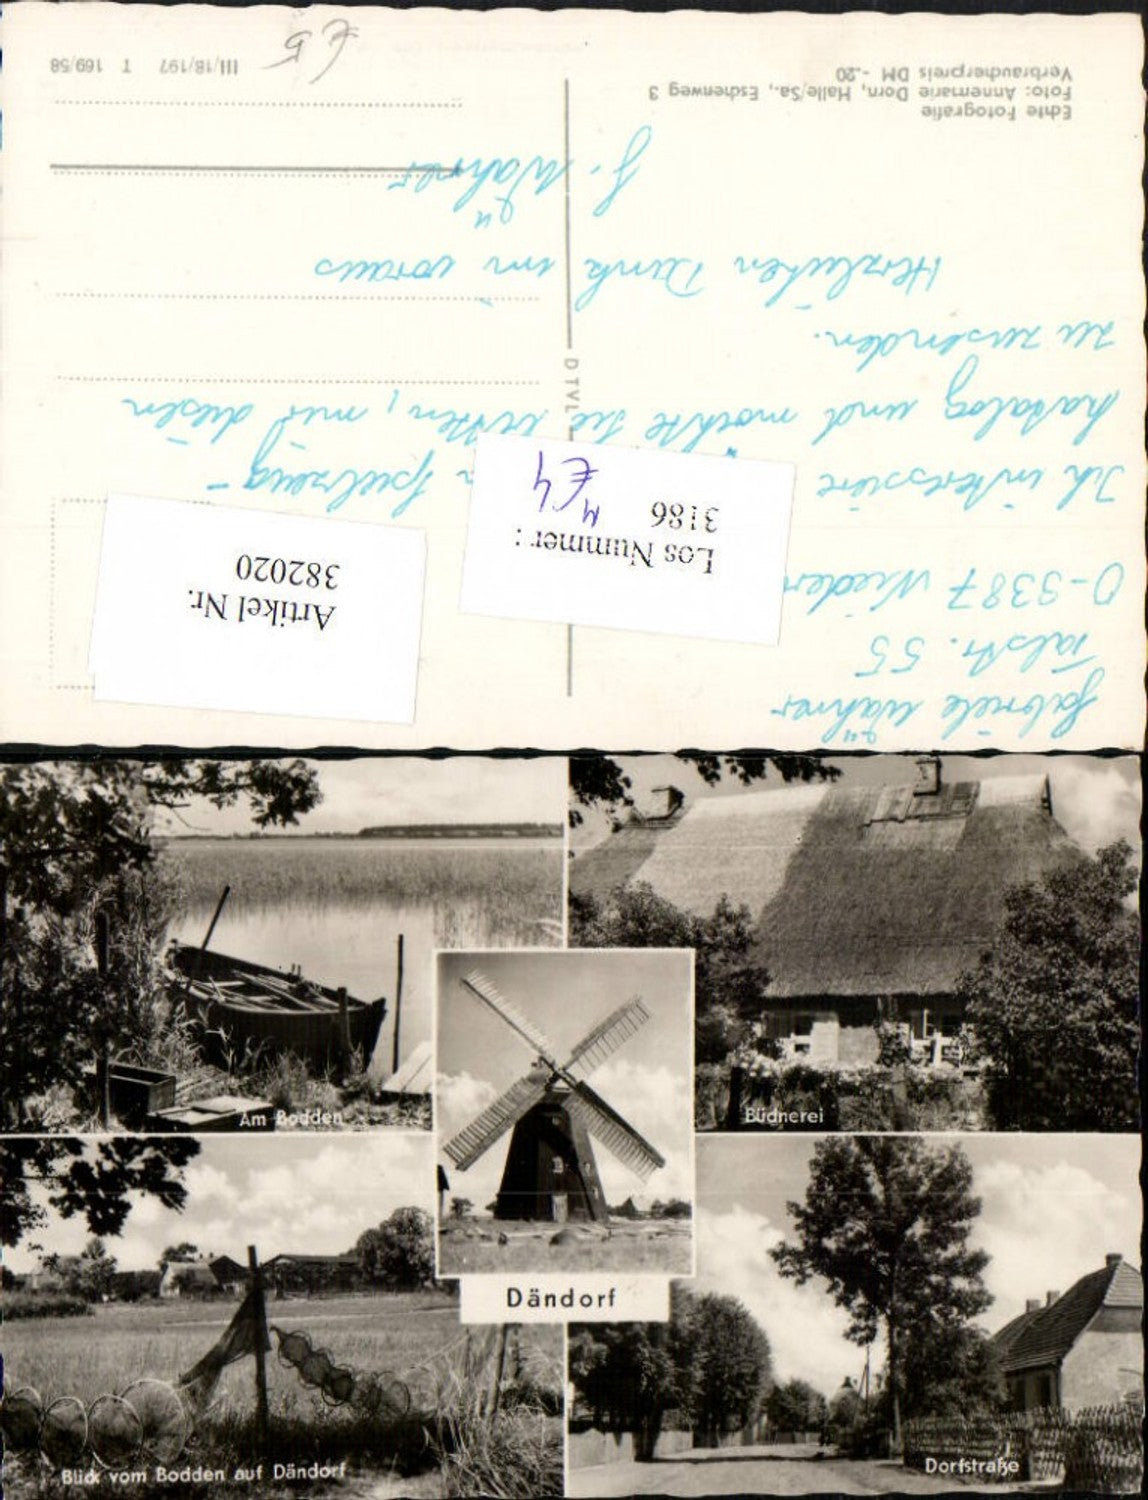 Gabriele Wührer
Talstr. 55
O-9387 Nieder
Ich interessiere
Spielzeug-
katalog und möchte Sie bitten, mir diesen
zu zusenden.
Herzlichen Dank im voraus
G. Wührer
ü
Los Nummer :
3186
€4
Artikel Nr.
382020
DTVL
Echte Fotografie
Foto: Annemarie Dorn, Halle/Sa., Eschenweg 3
Verbraucherpreis DM -.20
III/18/197 T 169/58
€5
Am Bodden
Büdnerei
Dändorf
Blick vom Bodden auf Dändorf
Dorfstraße